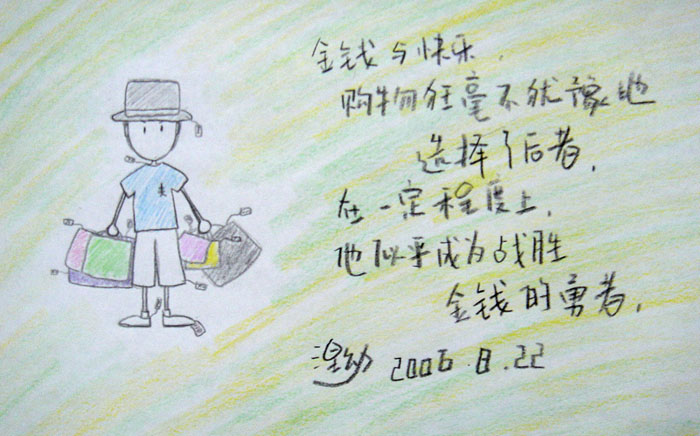 金钱与快乐,
购物狂毫不犹豫地
选择了后者,
在一定程度上,
他似乎成为战胜
金钱的勇者,
2006.8.22